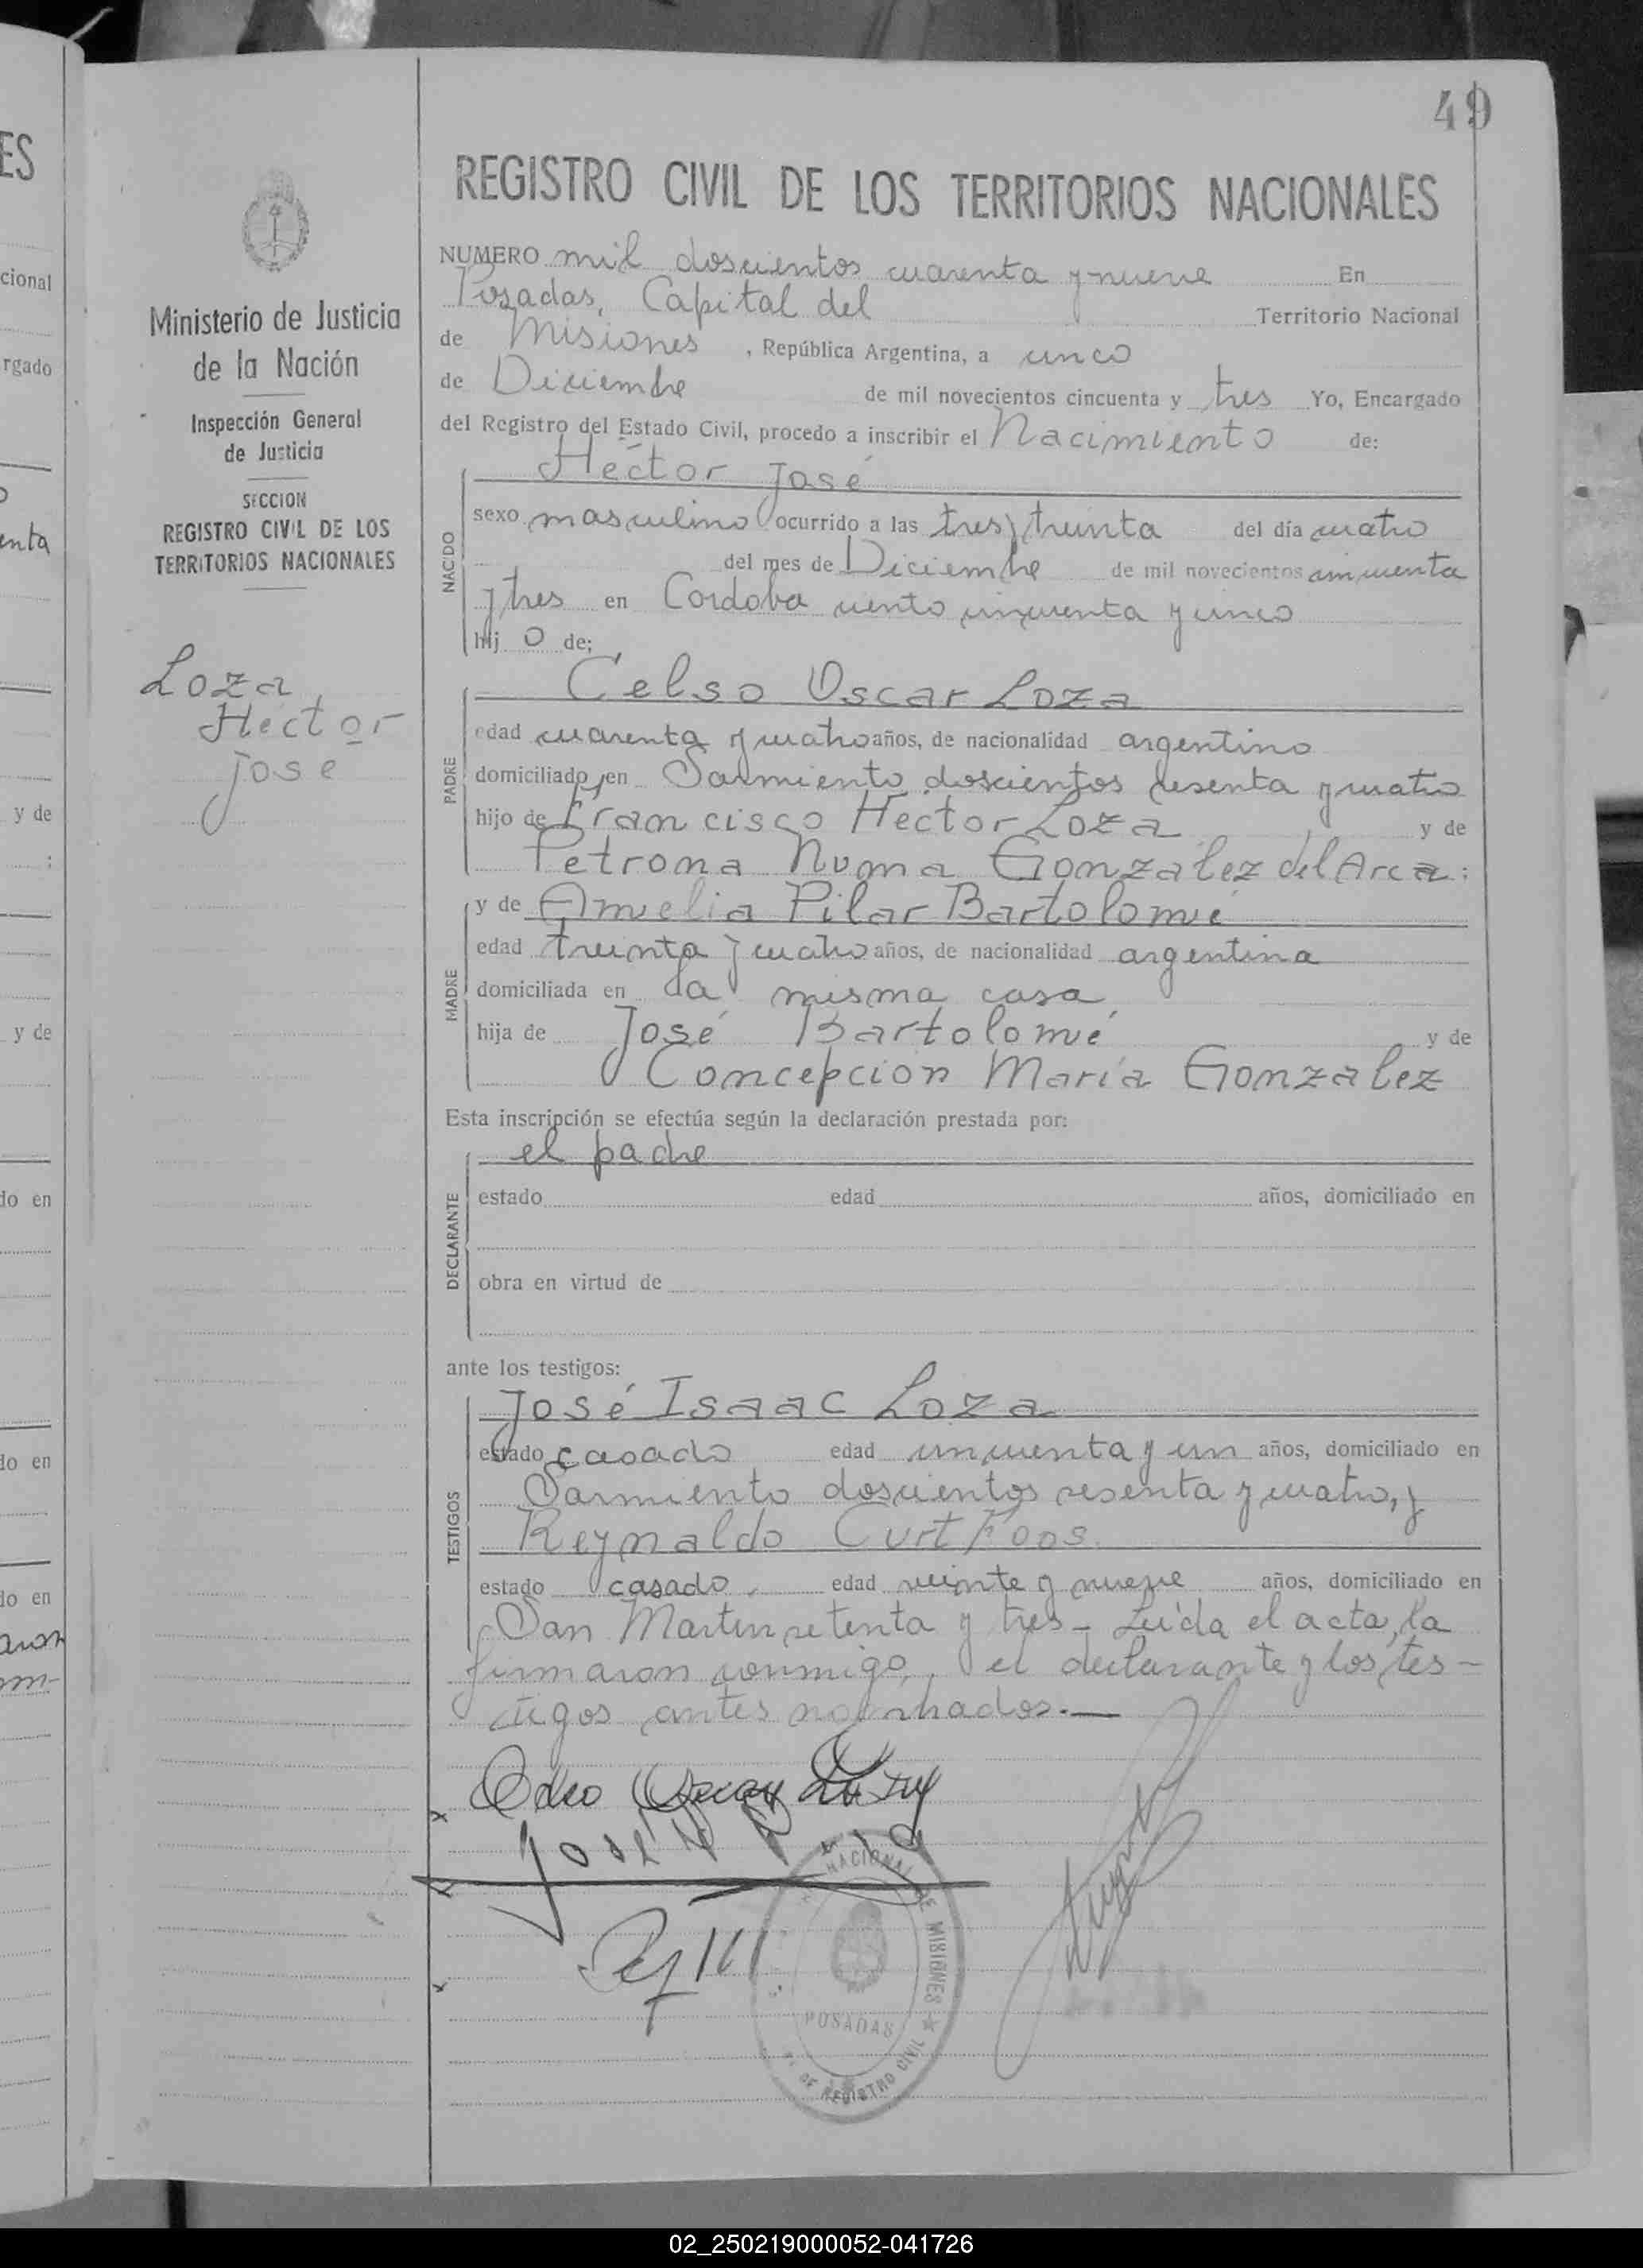 49
REGISTRO CIVIL DE LOS TERRITORIOS NACIONALES
Ministerio de Justicia
de la Nación
Inspección General
de Justicia
SECCION
REGISTRO CIVIL DE LOS
TERRITORIOS NACIONALES
Loza,
Héctor
José
NUMERO mil doscientos cuarenta y nueve En
Posadas, Capital del Territorio Nacional
de Misiones, República Argentina, a cinco
de Diciembre de mil novecientos cincuenta y tres Yo, Encargado
del Registro del Estado Civil, procedo a inscribir el Nacimiento de:
Héctor José
NACIDO
sexo masculino ocurrido a las tres y treinta del día cuatro
del mes de Diciembre de mil novecientos cincuenta
y tres en Cordoba ciento cincuenta y cinco
hij o de;
Celso Oscar Loza
PADRE
edad cuarenta y cuatro años, de nacionalidad argentino
domiciliado en Sarmiento doscientos sesenta y cuatro
hijo de Francisco Hector Loza y de
Petrona Numa Gonzalez del Arca:
y de Amelia Pilar Bartolomé
MADRE
edad treinta y cuatro años, de nacionalidad argentina
domiciliada en la misma casa
hija de José Bartolomé y de
Concepcion María Gonzalez
Esta inscripción se efectúa según la declaración prestada por:
el padre
DECLARANTE
estado edad años, domiciliado en
obra en virtud de
ante los testigos:
José Isaac Loza
TESTIGOS
estado casado edad cincuenta y un años, domiciliado en
Sarmiento doscientos sesenta y cuatro, y
Reynaldo Curt Foos.
estado casado, edad veinte y nueve años, domiciliado en
San Martin setenta y tres - Leída el acta, la
firmaron conmigo, el declarante y los tes-
tigos antes nombrados.—
Celso Oscar Loza
NACIONAL DE MISIONES
POSADAS
DE REGISTRO CIVIL
cional
rgado
enta
y de
y de
do en
do en
do en
02_250219000052-041726